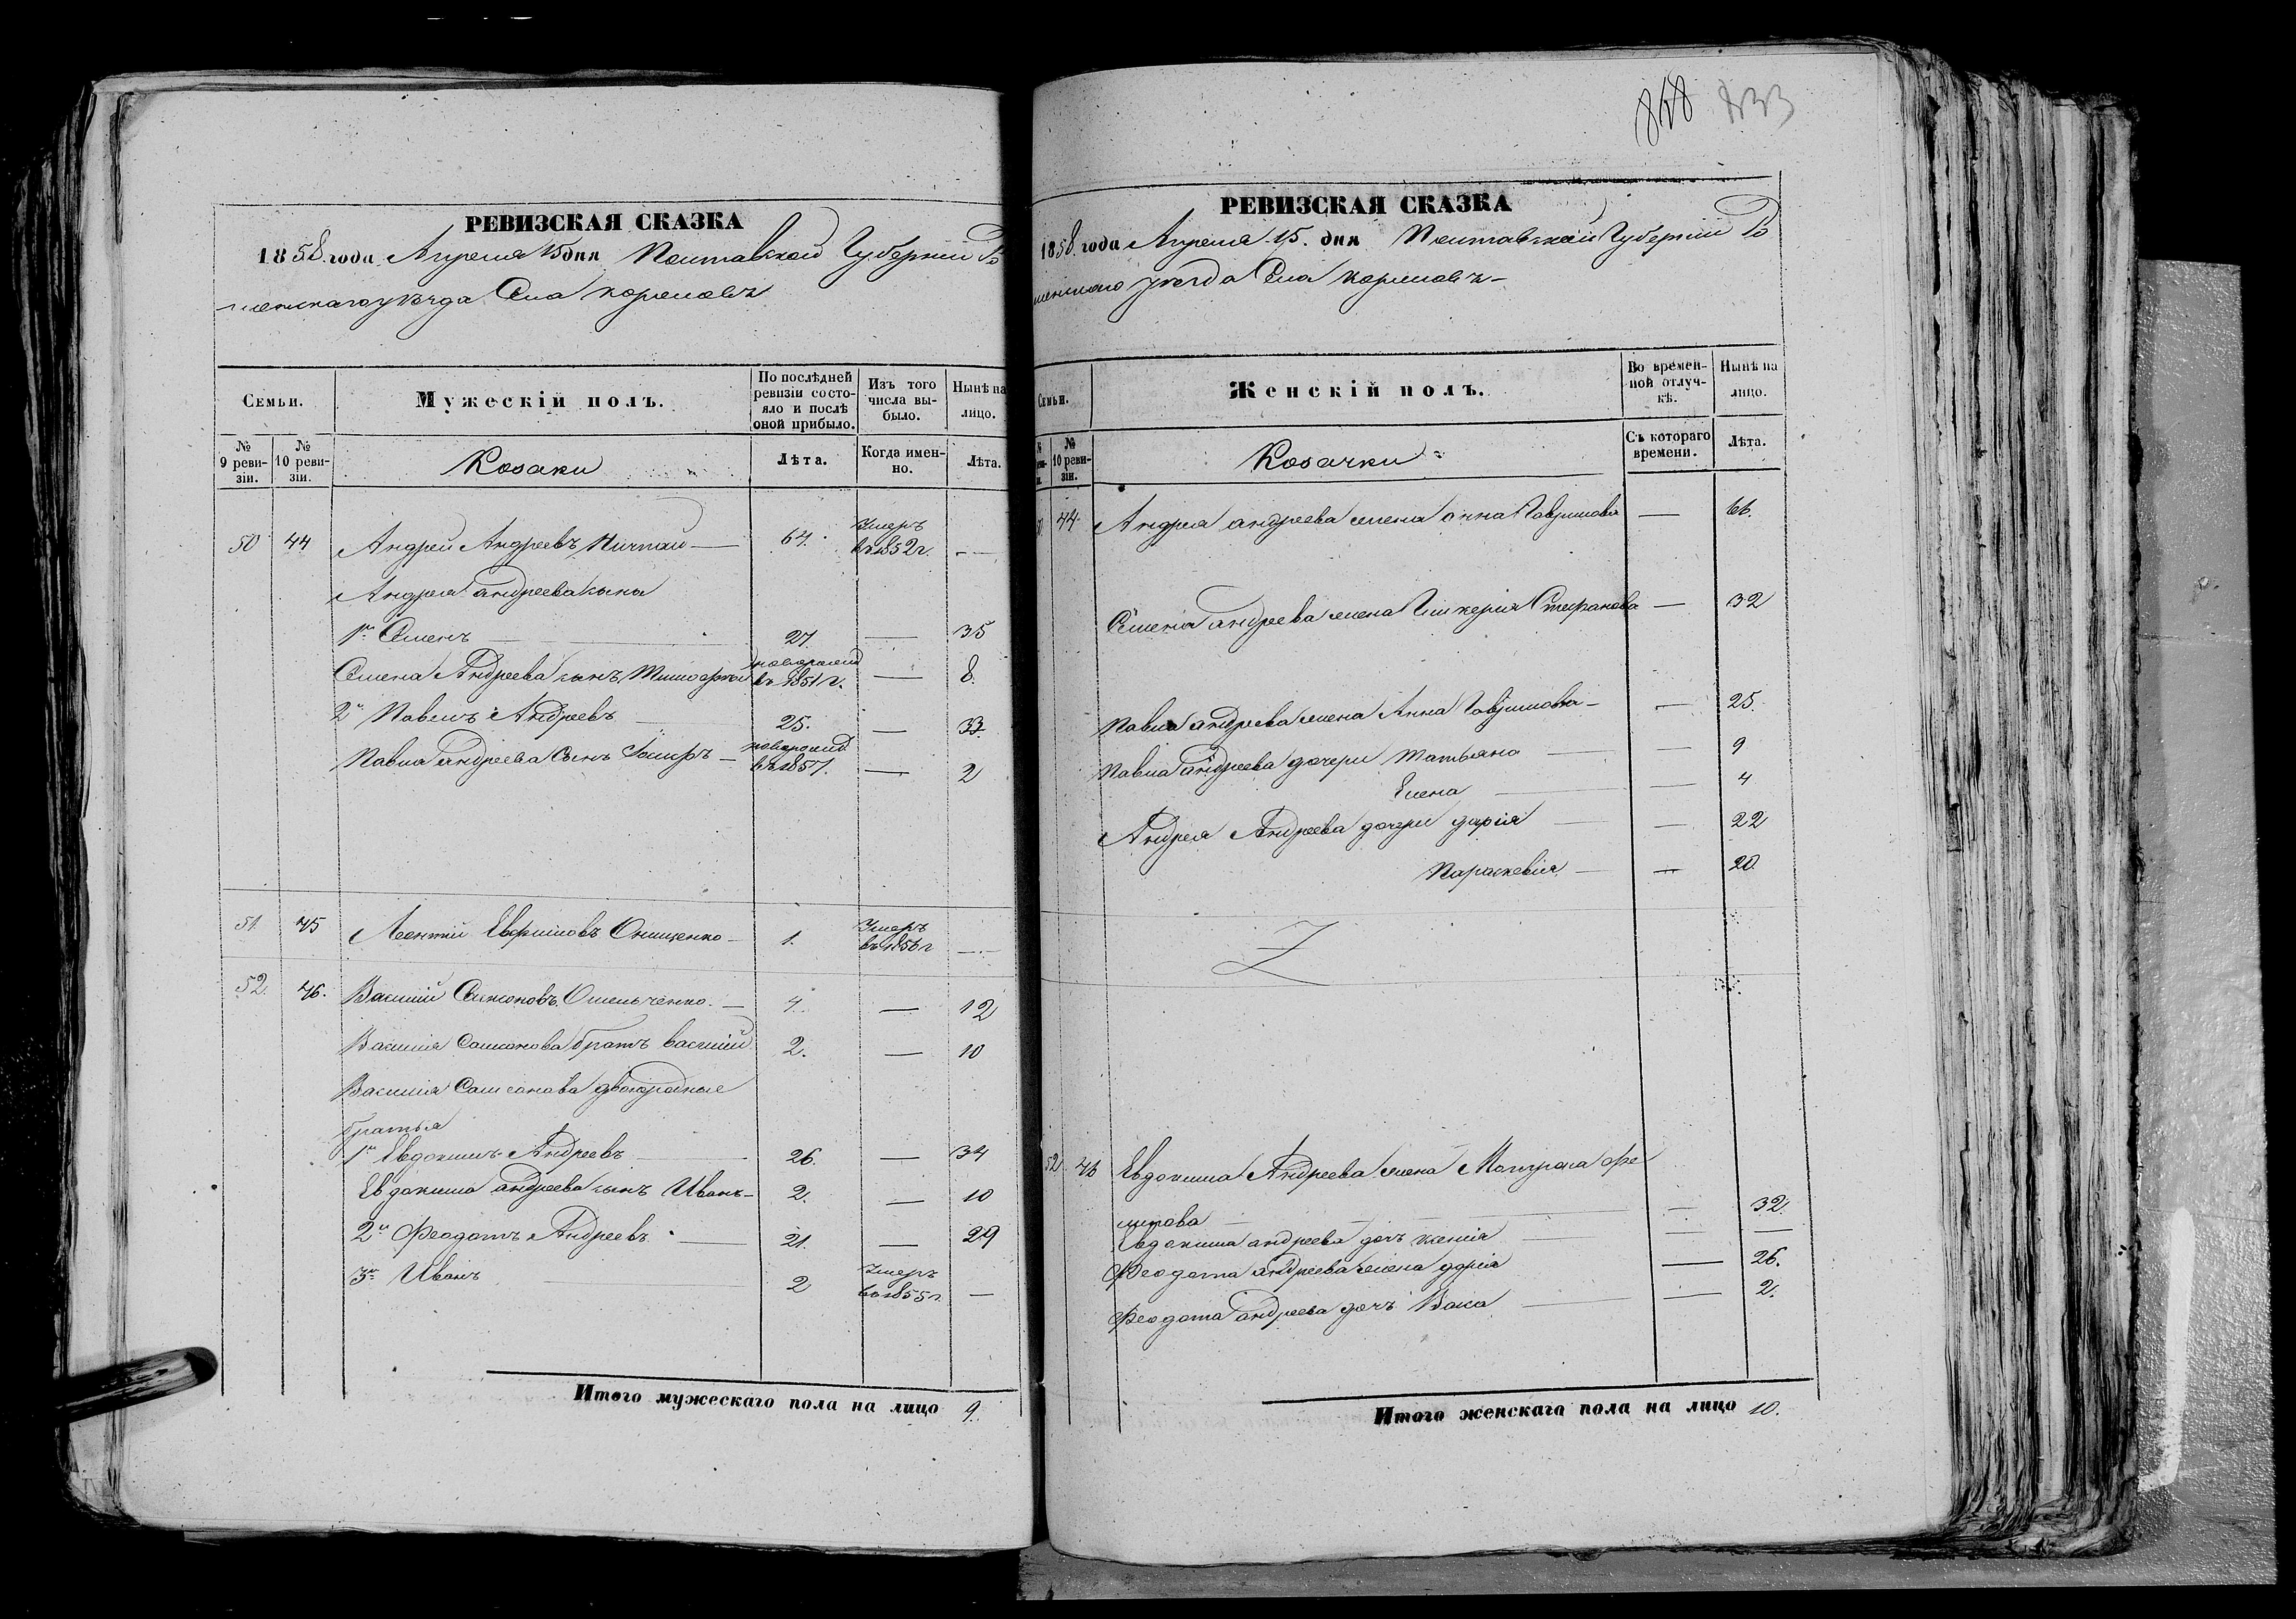 868 833
РЕВИЗСКАЯ СКАЗКА
1858 года Апреля 15 дня Полтавской Губернии Ро
менскаго уезда Села
Семьи.
Мужескій полъ.
По послѣдней ревизіи состояло и послѣ оной прибыло.
Изъ того числа выбыло.
Нынѣ на лицо.
№ 9 ревизіи.
№ 10 ревизіи.
Козаки
Лѣта.
Когда именно.
Лѣта.
50 44 Андрей Андреевъ 64. Умеръ въ 1852 г. —
Андрея Андреева сыны
1й Семенъ — 27 — 35
Семена Андреева сынъ новорожд въ 1851 г. — 8.
2й Павелъ Андреевъ 25. — 33.
Павла Андреева Сынъ — новорожд въ 1857. — 2
51. 45 Леонтий Онищенко — 1. Умеръ въ 1856 г —
52. 46. Василий Самсоновъ Омельченко. — 4. — 12
Василия Самсонова братъ василий 2. — 10
Василия Самсонова двоюродные
братья
1й Евдокимъ Андреевъ — 26. — 34
Евдокима андреева сынъ Иванъ — 2. — 10
2й Феодотъ Андреевъ — 21. — 29
3й Иванъ — 2 Умеръ въ 1855 г. —
Итого мужескаго пола на лицо 9.
РЕВИЗСКАЯ СКАЗКА
1858 года Апреля 15. дня Полтавской Губернии Ро
менскаго уезда Села
Семьи.
Женскій полъ.
Во временной отлучкѣ.
Нынѣ на лицо.
№ 10 ревизіи.
Козачки
Съ котораго времени.
Лѣта.
44 Андрея андреева жена анна Гаврилова — 66.
Семена андреева жена Гликерия Стефанова — 32
Павла андреева жена Анна Гаврилова — — 25.
Павла андреева дочери Татьяна — — 9
Елена — — 4
Андрея Андреева дочери дария — — 22
Параскевия — — 20.
52 46 Евдокима Андреева жена
— — 32.
Евдокима андреева дочь ксения — — —
Феодота андреева жена дария — 26.
Феодота андреева дочь Васа — — 2.
Итого женскаго пола на лицо 10.